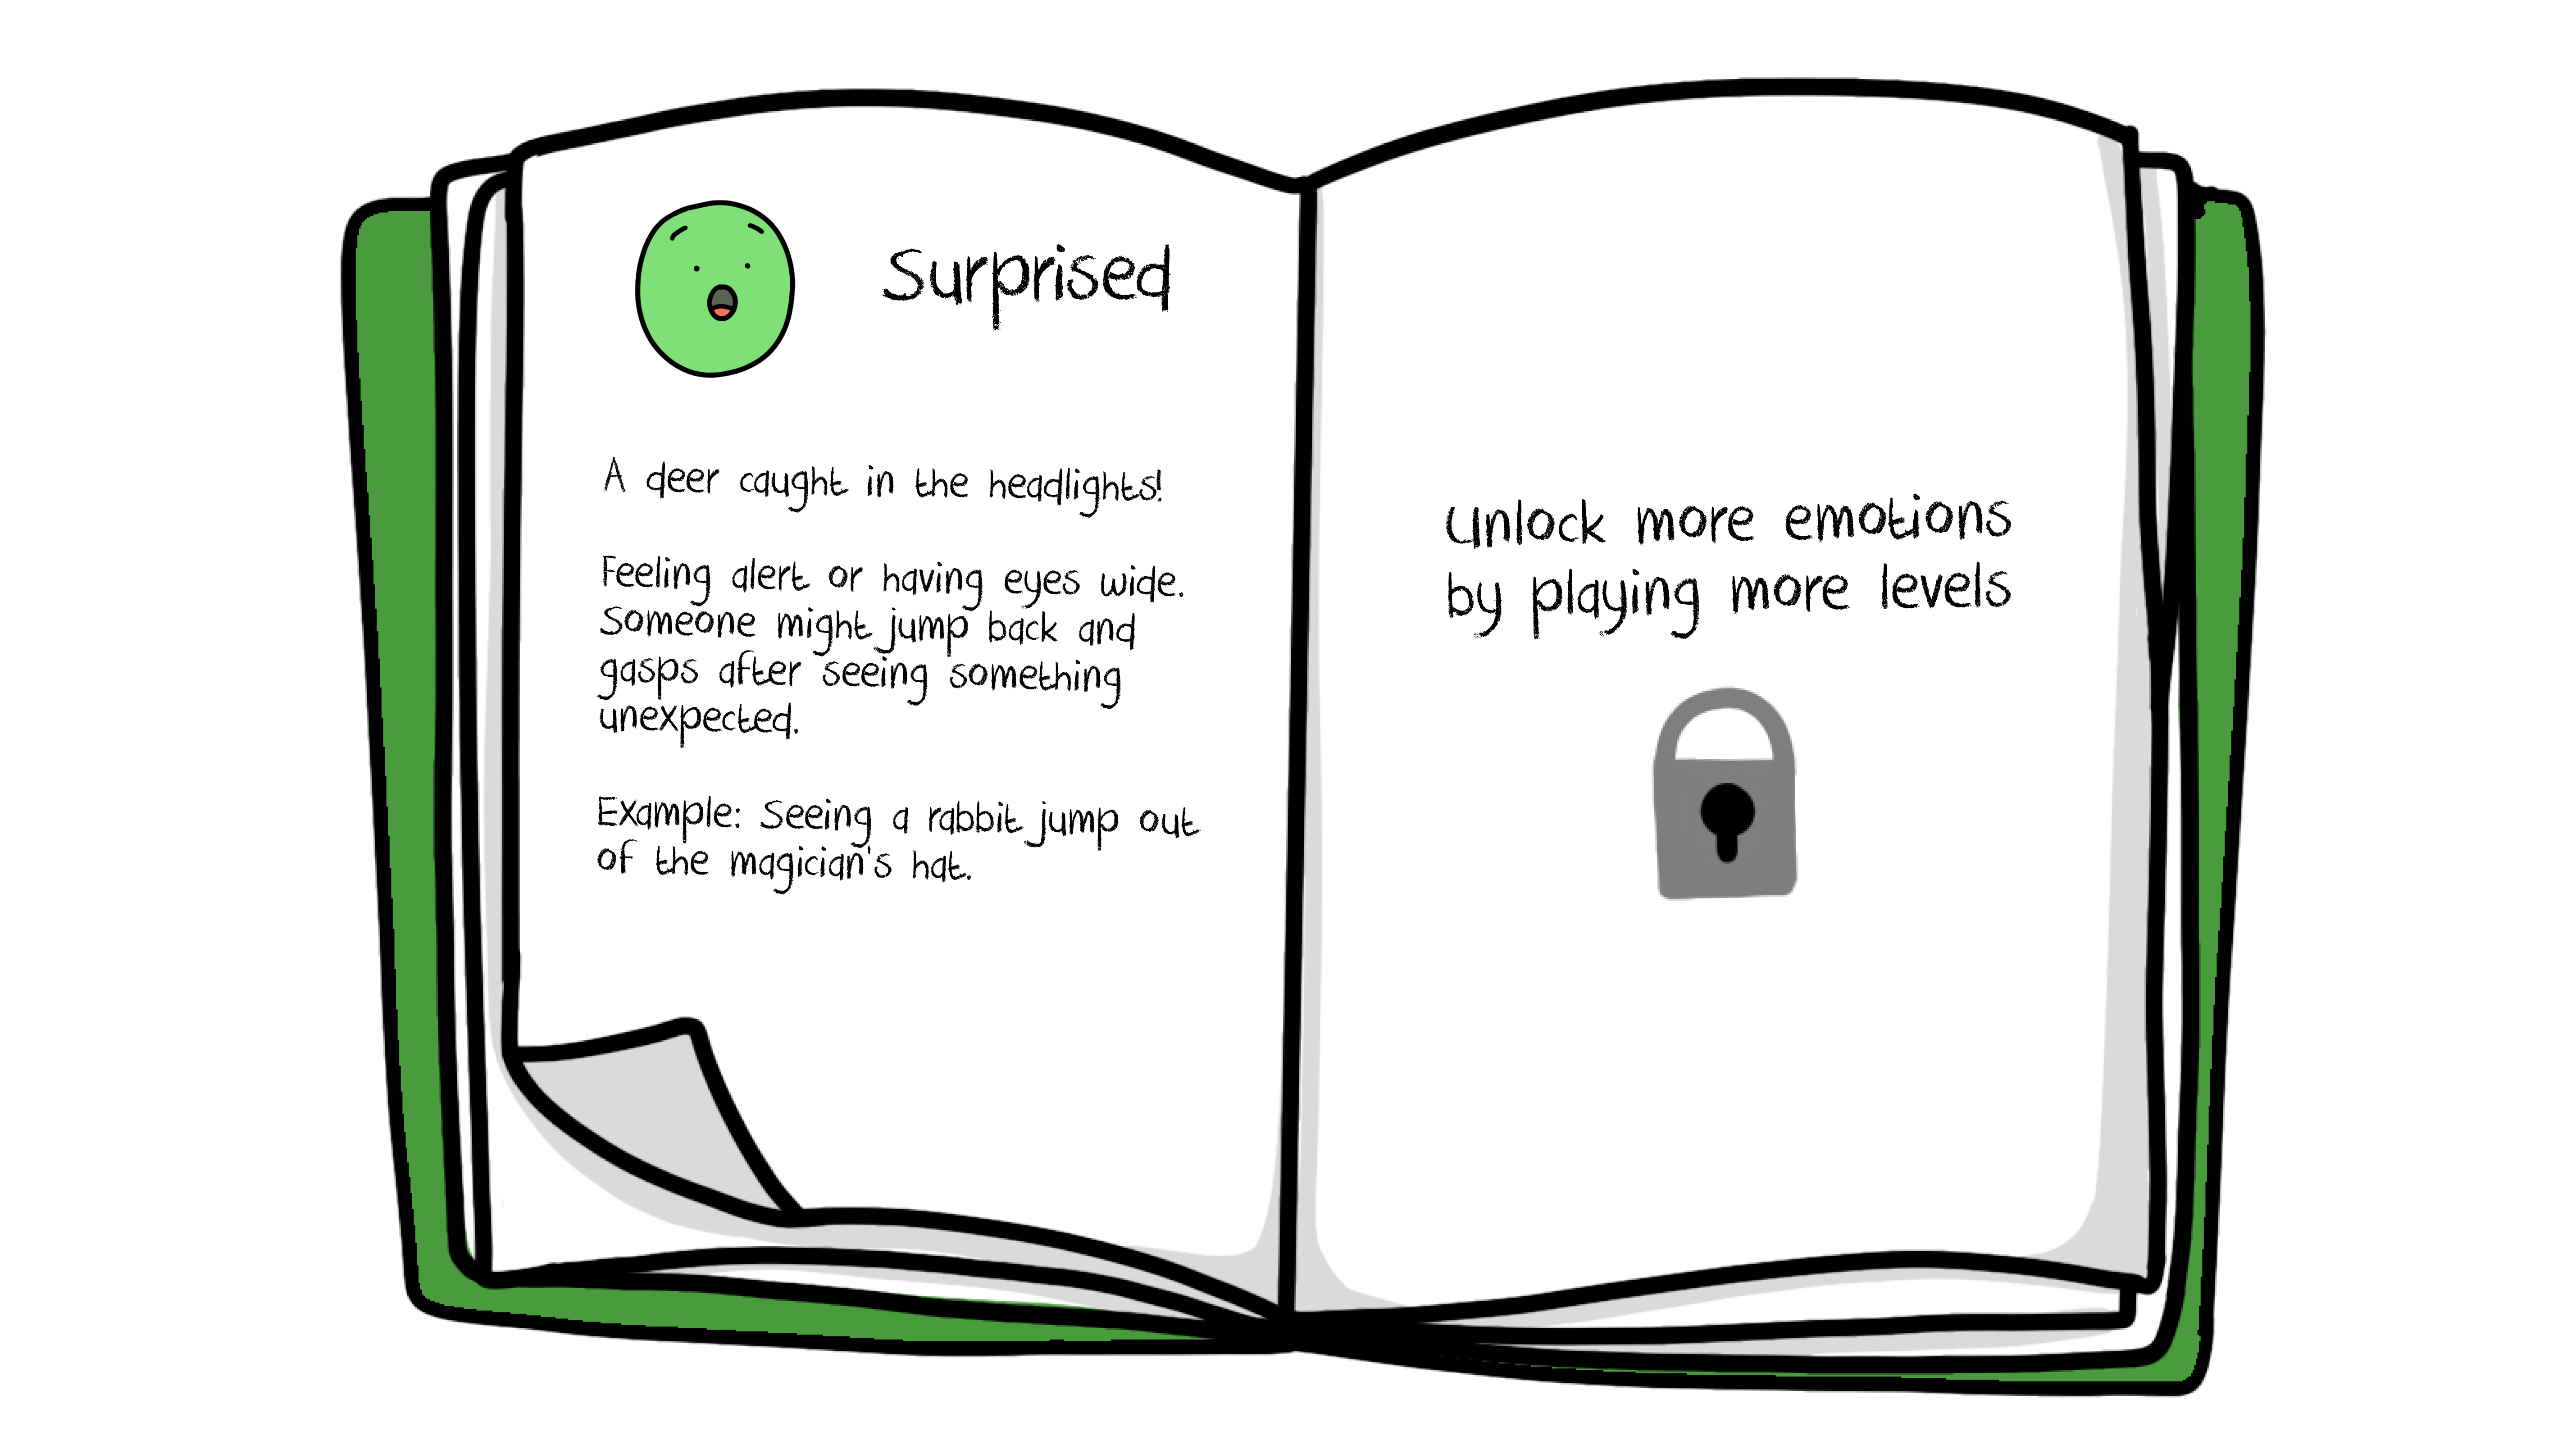 Surprised
A deer caught in the headlights!
Feeling alert or having eyes wide.
Someone might jump back and
gasps after seeing something
unexpected.
Example: Seeing a rabbit jump out
of the magician's hat.
Unlock more emotions
by playing more levels